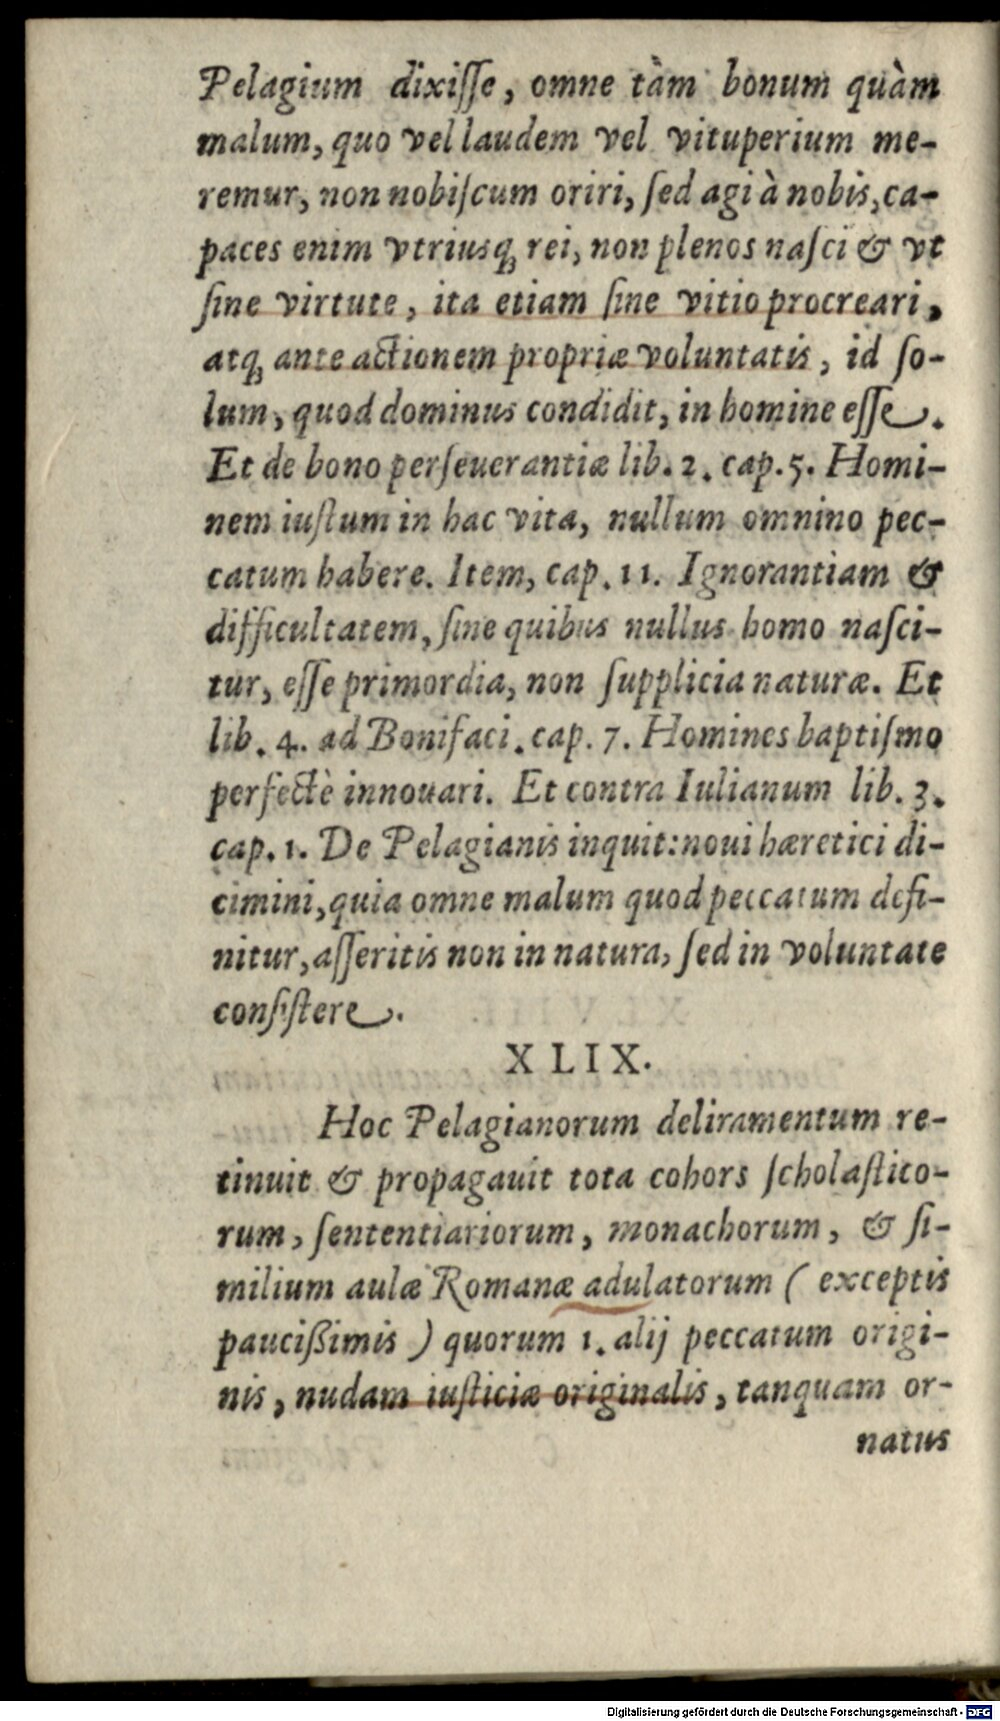 Pelagium dixiſſe, omne tàm bonum quàm
malum, quo vel laudem vel vituperium me-
remur, non nobiſcum oriri, ſed agi à nobis, ca-
paces enim vtriusq́; rei, non plenos naſci & vt
ſine virtute, ita etiam ſine vitio procreari,
atq́; ante actionem propriæ voluntatis, id ſo-
lum, quod dominus condidit, in homine eſſe.
Et de bono perſeuerantiæ lib. 2. cap. 5. Homi-
nem iuſtum in hac vita, nullum omnino pec-
catum habere. Item, cap. 11. Ignorantiam &
difficultatem, ſine quibus nullus homo naſci-
tur, eſſe primordia, non ſupplicia naturæ. Et
lib. 4. ad Bonifaci. cap. 7. Homines baptiſmo
perfectè innouari. Et contra Iulianum lib. 3.
cap. 1. De Pelagianis inquit: noui hæretici di-
cimini, quia omne malum quod peccatum defi-
nitur, aſſeritis non in natura, ſed in voluntate
conſiſtere.
XLIX.
Hoc Pelagianorum deliramentum re-
tinuit & propagauit tota cohors ſcholaſtico-
rum, ſententiariorum, monachorum, & ſi-
milium aulæ Romanæ adulatorum ( exceptis
pauciſsimis ) quorum 1. alij peccatum origi-
nis, nudam iuſticiæ originalis, tanquam or-
natus
Digitalisierung gefördert durch die Deutsche Forschungsgemeinschaft - DFG